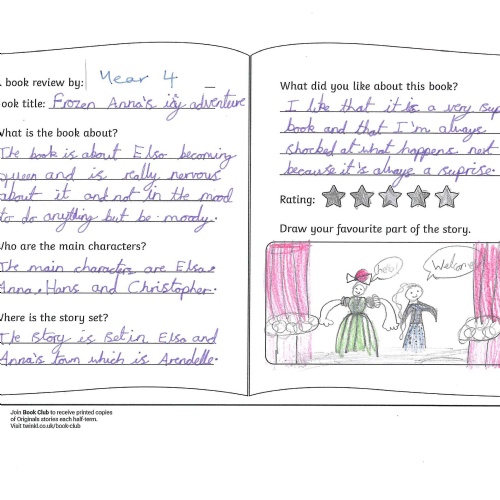 book review by: Year 4
ook title: Frozen Anna's icy adventure
What is the book about?
The book is about Elsa becoming
queen and is really nervous
about it and not in the mood
to do anything but be moody.
Who are the main characters?
The main characters are Elsa,
Anna, Hans and Christopher.
Where is the story set?
The story is set in Elsa and
Anna's town which is Arendelle.
Join Book Club to receive printed copies
of Originals stories each half-term.
Visit twinkl.co.uk/book-club
What did you like about this book?
I like that it is a very sup
book and that I'm always
shocked at what happens next
because it's always a suprise.
Rating:
Draw your favourite part of the story.
hello!
Welcome